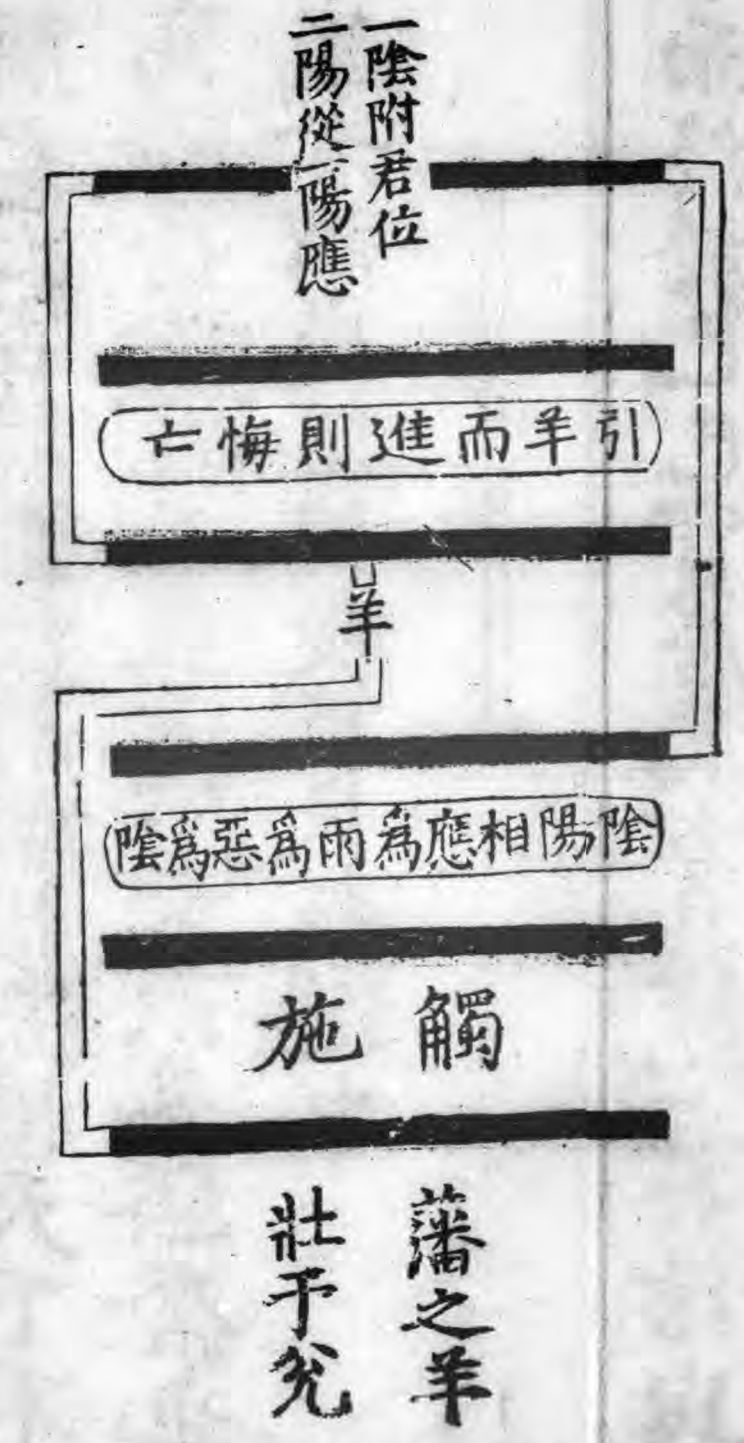 一陰附君位
二陽從一陽應
引羊而進則悔亡
羊
陰陽相應為雨為惡為陰
觸
施
藩之羊
壯于兊